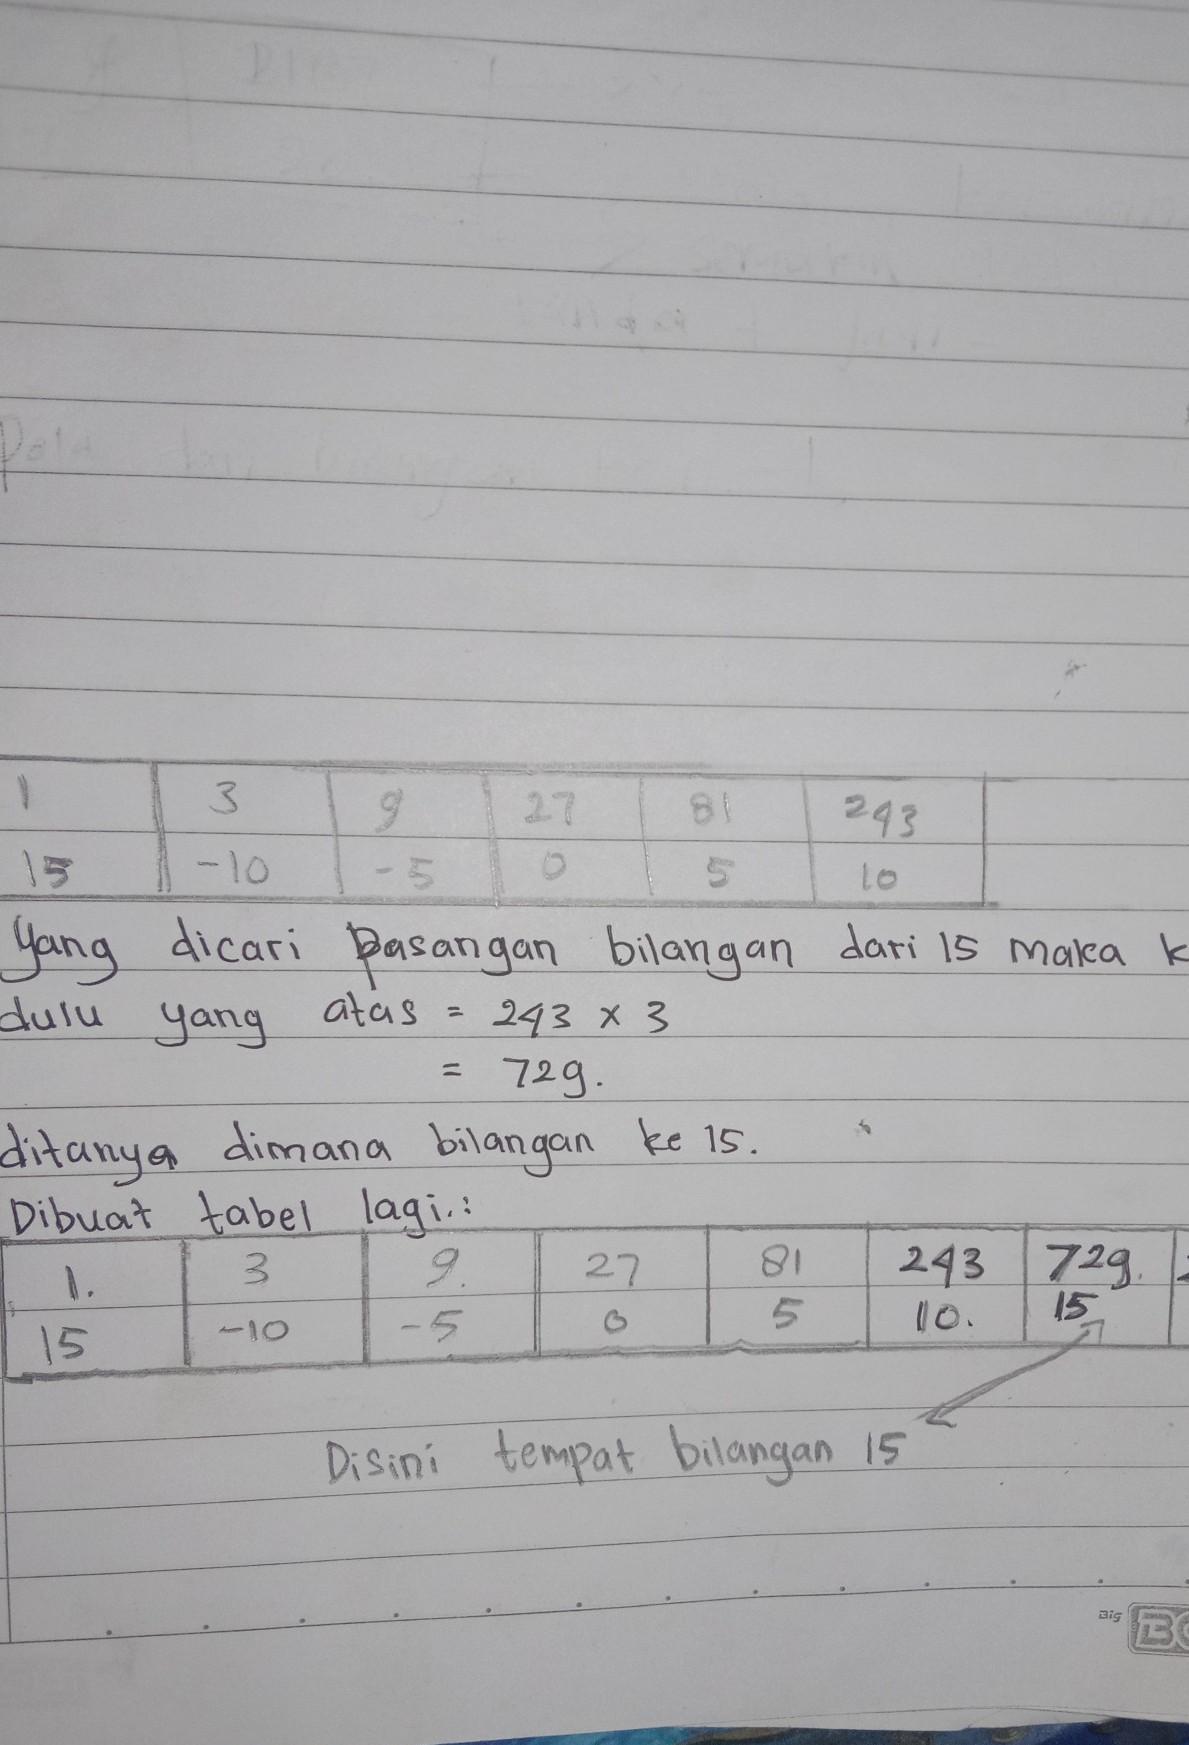 1 3 9 27 81 243
15 -10 -5 0 5 10
Yang dicari pasangan bilangan dari 15 maka k
dulu yang atas = 243 x 3
= 729.
ditanya dimana bilangan ke 15.
Dibuat tabel lagi.:
1. 3 9. 27 81 243 729.
15 -10 -5 0 5 10. 15
Disini tempat bilangan 15
Big